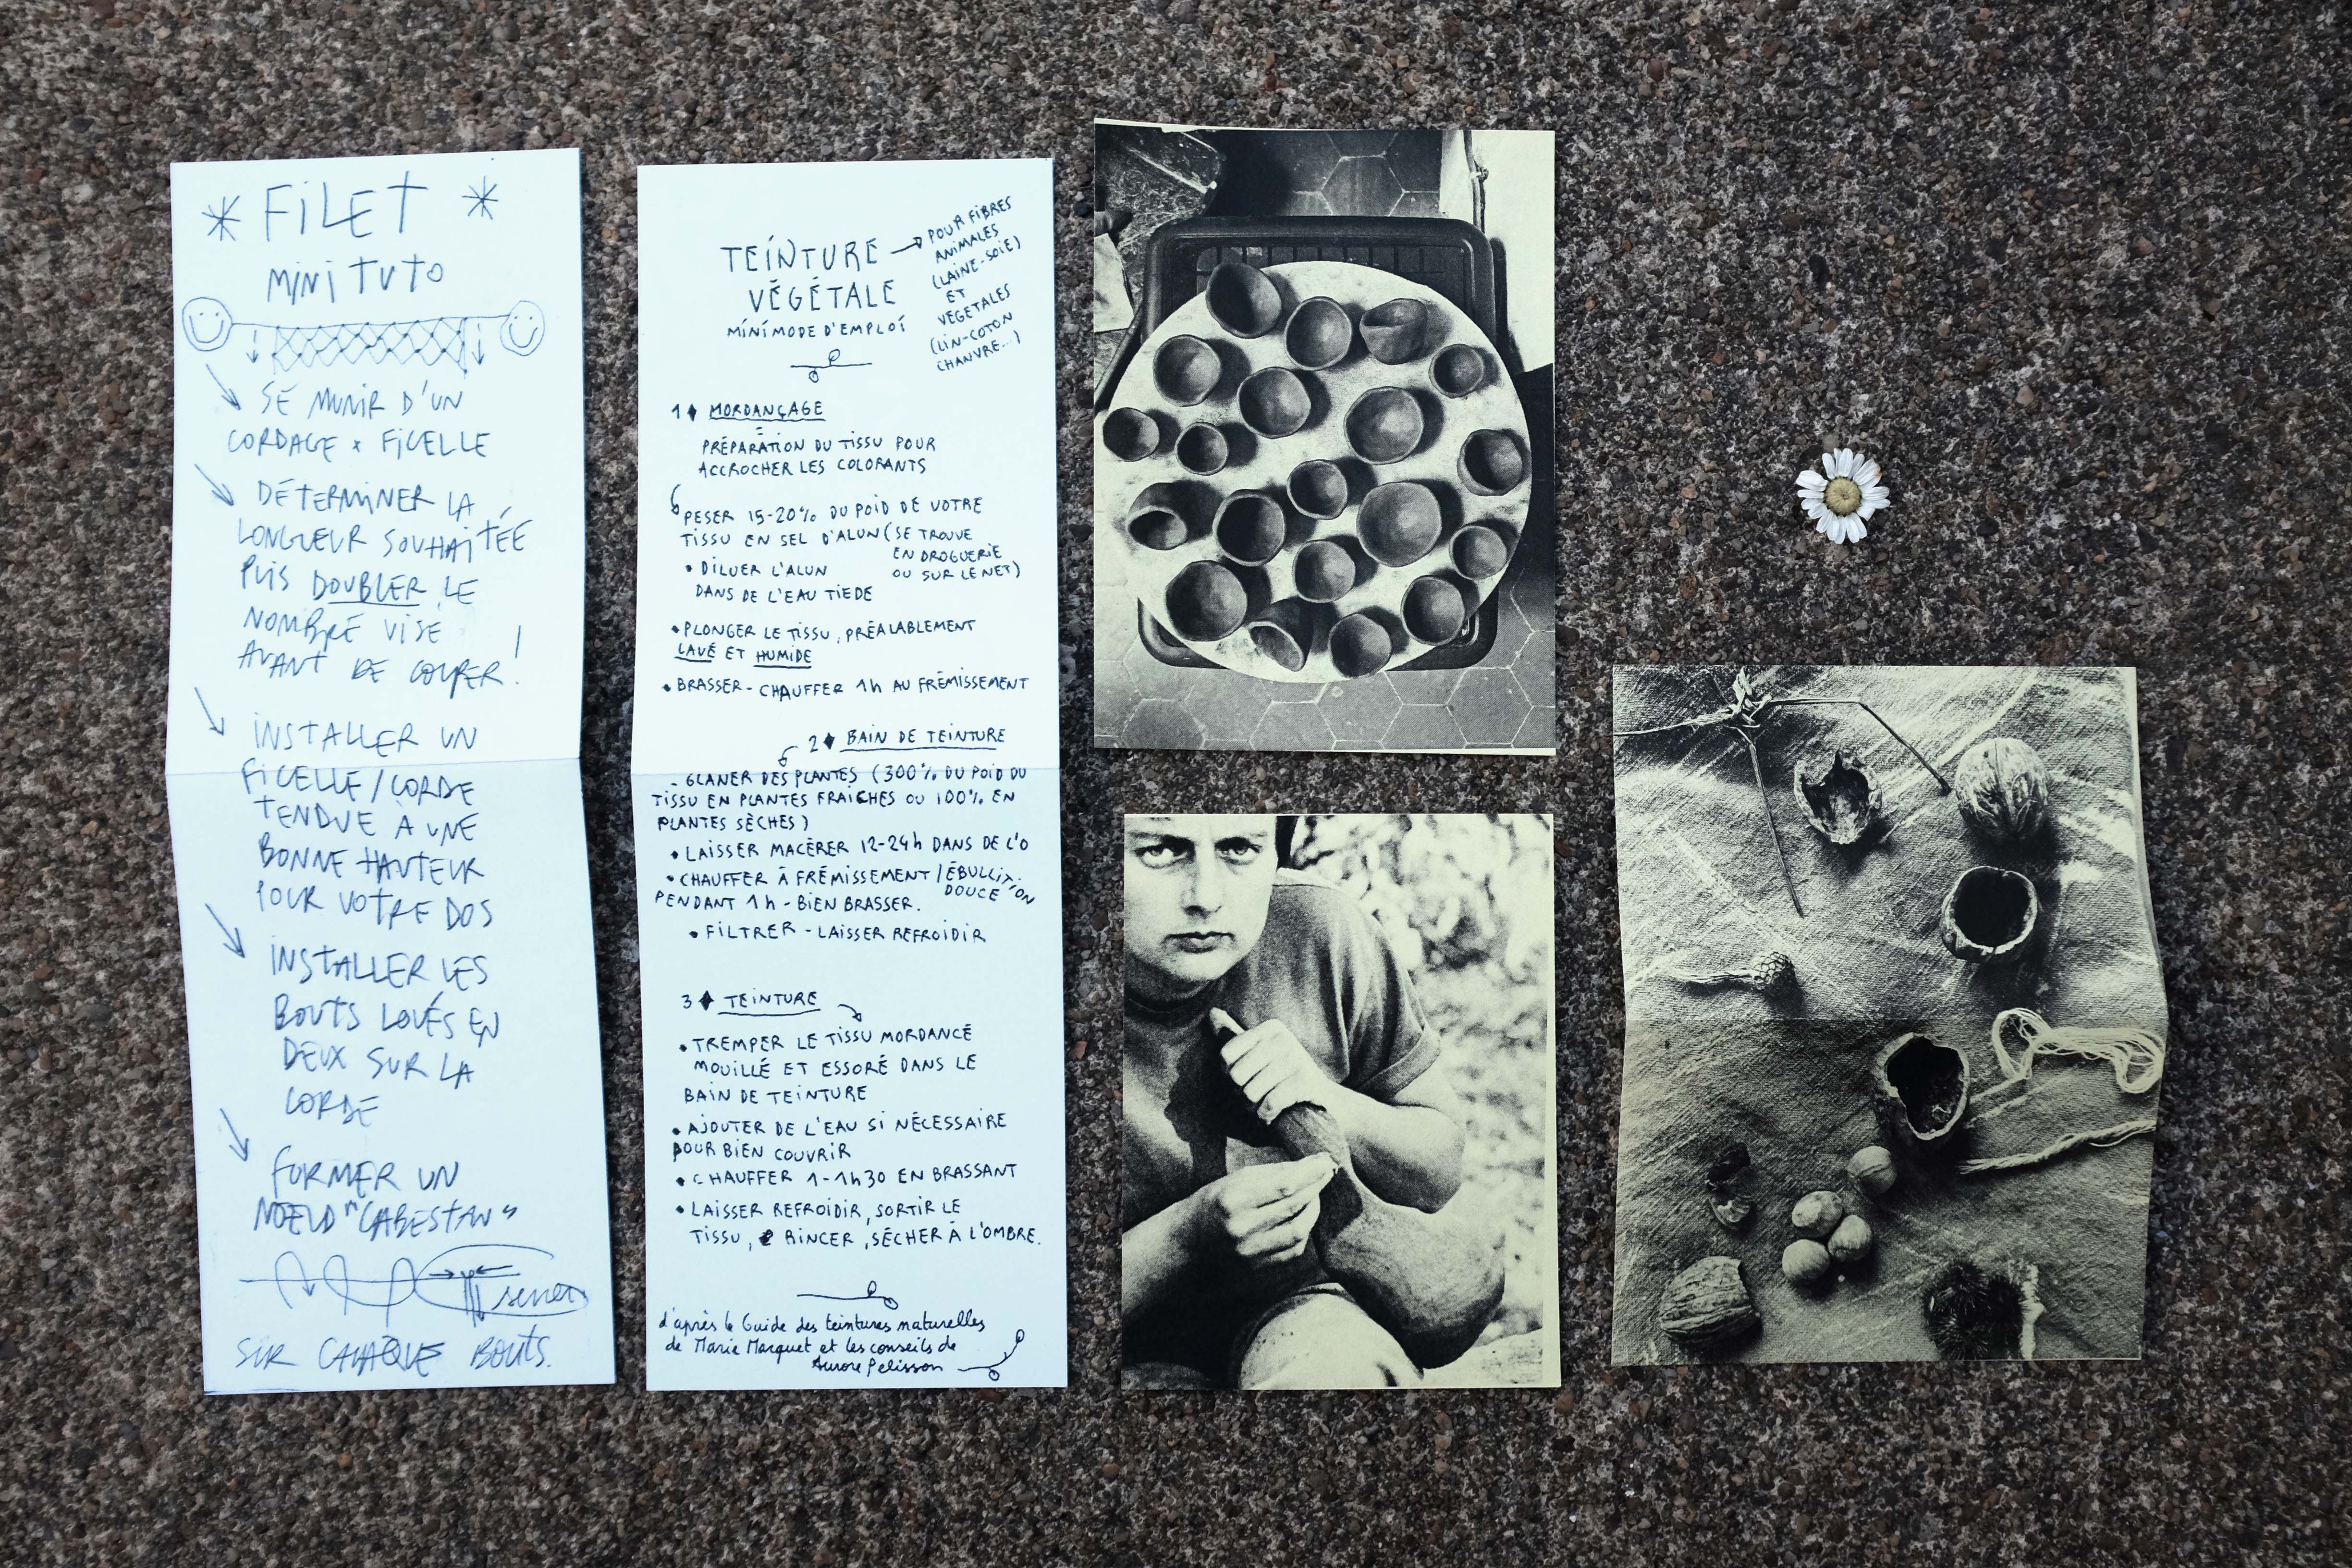 * FILET *
MINI TUTO
SE MUNIR D'UN
CORDAGE x FICELLE
DÉTERMINER LA
LONGUEUR SOUHAITÉE
PUIS DOUBLER LE
NOMBRE VISÉ
AVANT DE COUPER !
INSTALLER UN
FICELLE/CORDE
TENDUE À UNE
BONNE HAUTEUR
POUR VOTRE DOS
INSTALLER LES
BOUTS LOVÉS EN
DEUX SUR LA
CORDE
FORMER UN
NOEUD "CABESTAN"
serrer
SUR CHAQUE BOUTS.
TEINTURE
VÉGÉTALE
MINIMODE D'EMPLOI
POUR FIBRES
ANIMALES
(LAINE-SOIE)
ET
VEGETALES
(LIN-COTON
CHANVRE...)
1 MORDANÇAGE
=
PRÉPARATION DU TISSU POUR
ACCROCHER LES COLORANTS
PESER 15-20% DU POID DE VOTRE
TISSU EN SEL D'ALUN (SE TROUVE
EN DROGUERIE
OU SUR LE NET)
• DILUER L'ALUN
DANS DE L'EAU TIEDE
• PLONGER LE TISSU, PRÉALABLEMENT
LAVÉ ET HUMIDE
• BRASSER - CHAUFFER 1h AU FRÉMISSEMENT
2 BAIN DE TEINTURE
- GLANER DES PLANTES (300% DU POID DU
TISSU EN PLANTES FRAICHES OU 100% EN
PLANTES SÈCHES)
• LAISSER MACÉRER 12-24h DANS DE L'O
• CHAUFFER À FRÉMISSEMENT / ÉBULLITION
DOUCE
PENDANT 1h - BIEN BRASSER.
• FILTRER - LAISSER REFROIDIR
3 TEINTURE
• TREMPER LE TISSU MORDANCÉ
MOUILLÉ ET ESSORÉ DANS LE
BAIN DE TEINTURE
• AJOUTER DE L'EAU SI NÉCESSAIRE
POUR BIEN COUVRIR
• CHAUFFER 1-1h30 EN BRASSANT
• LAISSER REFROIDIR, SORTIR LE
TISSU, RINCER, SÉCHER À L'OMBRE.
d'après le Guide des teintures naturelles
de Marie Marquet et les conseils de
Aurore Pelisson